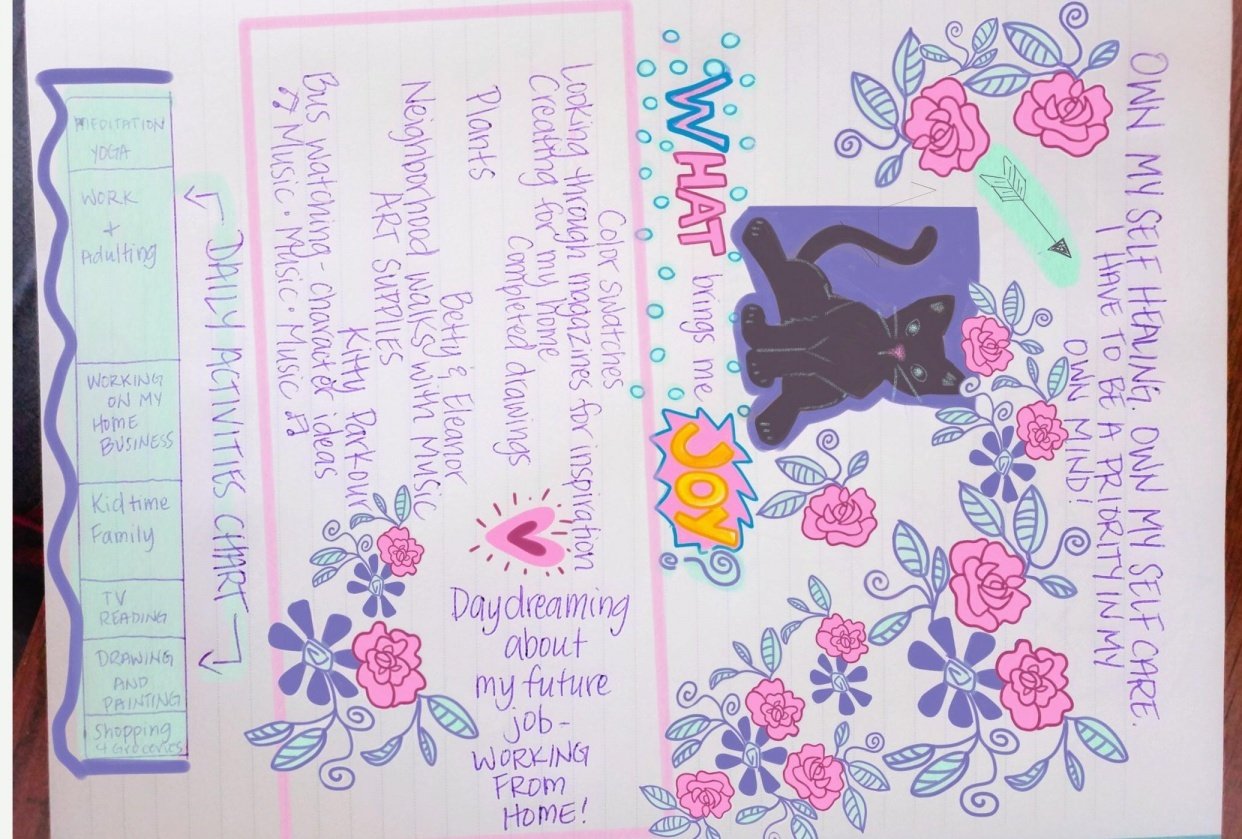 OWN MY SELF HEALING. OWN MY SELF CARE.
I HAVE TO BE A PRIORITY IN MY
OWN MIND!
WHAT brings me JOY?
Color swatches
Looking through magazines for inspiration
Creating for my home
Completed drawings
Plants
Betty & Eleanor
Neighborhood walks with Music
ART SUPPLIES
Kitty Parkour
Bus watching - character ideas
♫ Music · Music · Music ♫
Daydreaming
about
my future
job -
WORKING
FROM
HOME!
DAILY ACTIVITIES CHART
MEDITATION
YOGA
WORK
+
Adulting
WORKING
ON MY
HOME
BUSINESS
Kid time
Family
TV
READING
DRAWING
AND
PAINTING
Shopping
+ Groceries